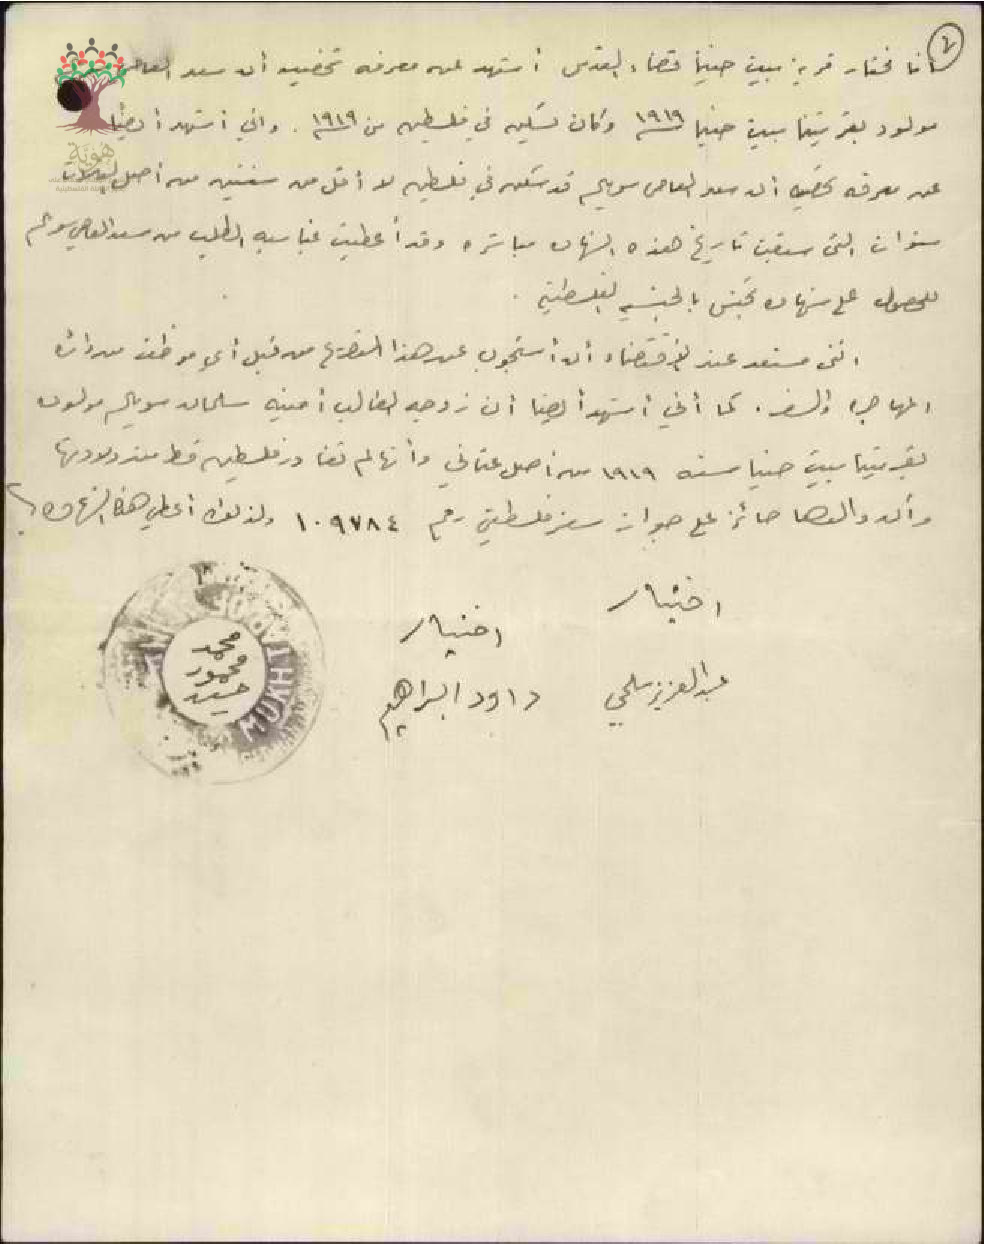 ٤
أنا مختار قرية بيت حنينا قضاء القدس أشهد عن معرفه شخصيه أن سعد العاصي
مولود بقريتنا بيت حنينا ١٩١٩ وكان يسكن في فلسطين من ١٩١٩. واني أشهد أيضاً
عن معرفه شخصيه أن سعد العاصي سويلم قد سكن في فلسطين لا أقل من سنتين من أصل
سنوات التي سبقت تاريخ هذه الشهاده مباشره وقد أعطيت بمناسبه الطلب من سعد العاصي سويلم
للحصول على شهادة تجنس بالجنسيه الفلسطينيه.
انني مستعد عند الاقتضاء أن أستجوب عن هذا التصريح من قبل أي موظف من دائرة
المهاجره والسفر. كما أني أشهد أيضا أن زوجه الطالب أمينه سلمان سويلم مولوده
بقريتنا بيت حنينا سنه ١٩١٩ من أصل عثماني وأنها لم تغادر فلسطين قط منذ ولادتها
وأن والدها حائز على جواز سفر فلسطيني رقم ١٠٩٧٨٤ ولذلك أعطي هذه الشهاده
اختيار
عبدالعزيز
اختيار
داود ابراهيم
محمد
محمود
MUKHTAR
هوية